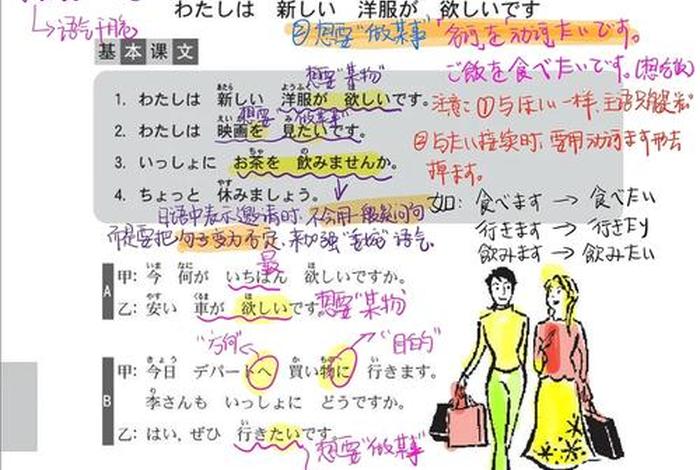 わたしは 新しい 洋服が 欲しいです
→语气干脆
②想要“做某事” “名词を动词たいです。
基本课文
ご飯を食べたいです。(想吃饭)
想要“某物”
1. わたしは 新しい 洋服が 欲しいです。
注意：①与ほしい一样，主语只能是
想要“做某事”
2. わたしは 映画を 見たいです。
②与たい接续时，要用动词ます形去
3. いっしょに お茶を 飲みませんか。
掉ます。
4. ちょっと 休みましょう。
如：食べます → 食べたい
日语中表示邀请时，不会用一般疑问句
行きます → 行きたい
而是要把句子变为否定，来加强“委婉”语气
飲みます → 飲みたい
最
A
甲: 今 何が いちばん 欲しいですか。
乙: 安い 車が 欲しいです。
想要“某物”
“方向” “目的”
B
甲: 今日 デパートへ 買い物に 行きます。
李さんも いっしょに どうですか。
乙: はい，ぜひ 行きたいです
想要“做某事”